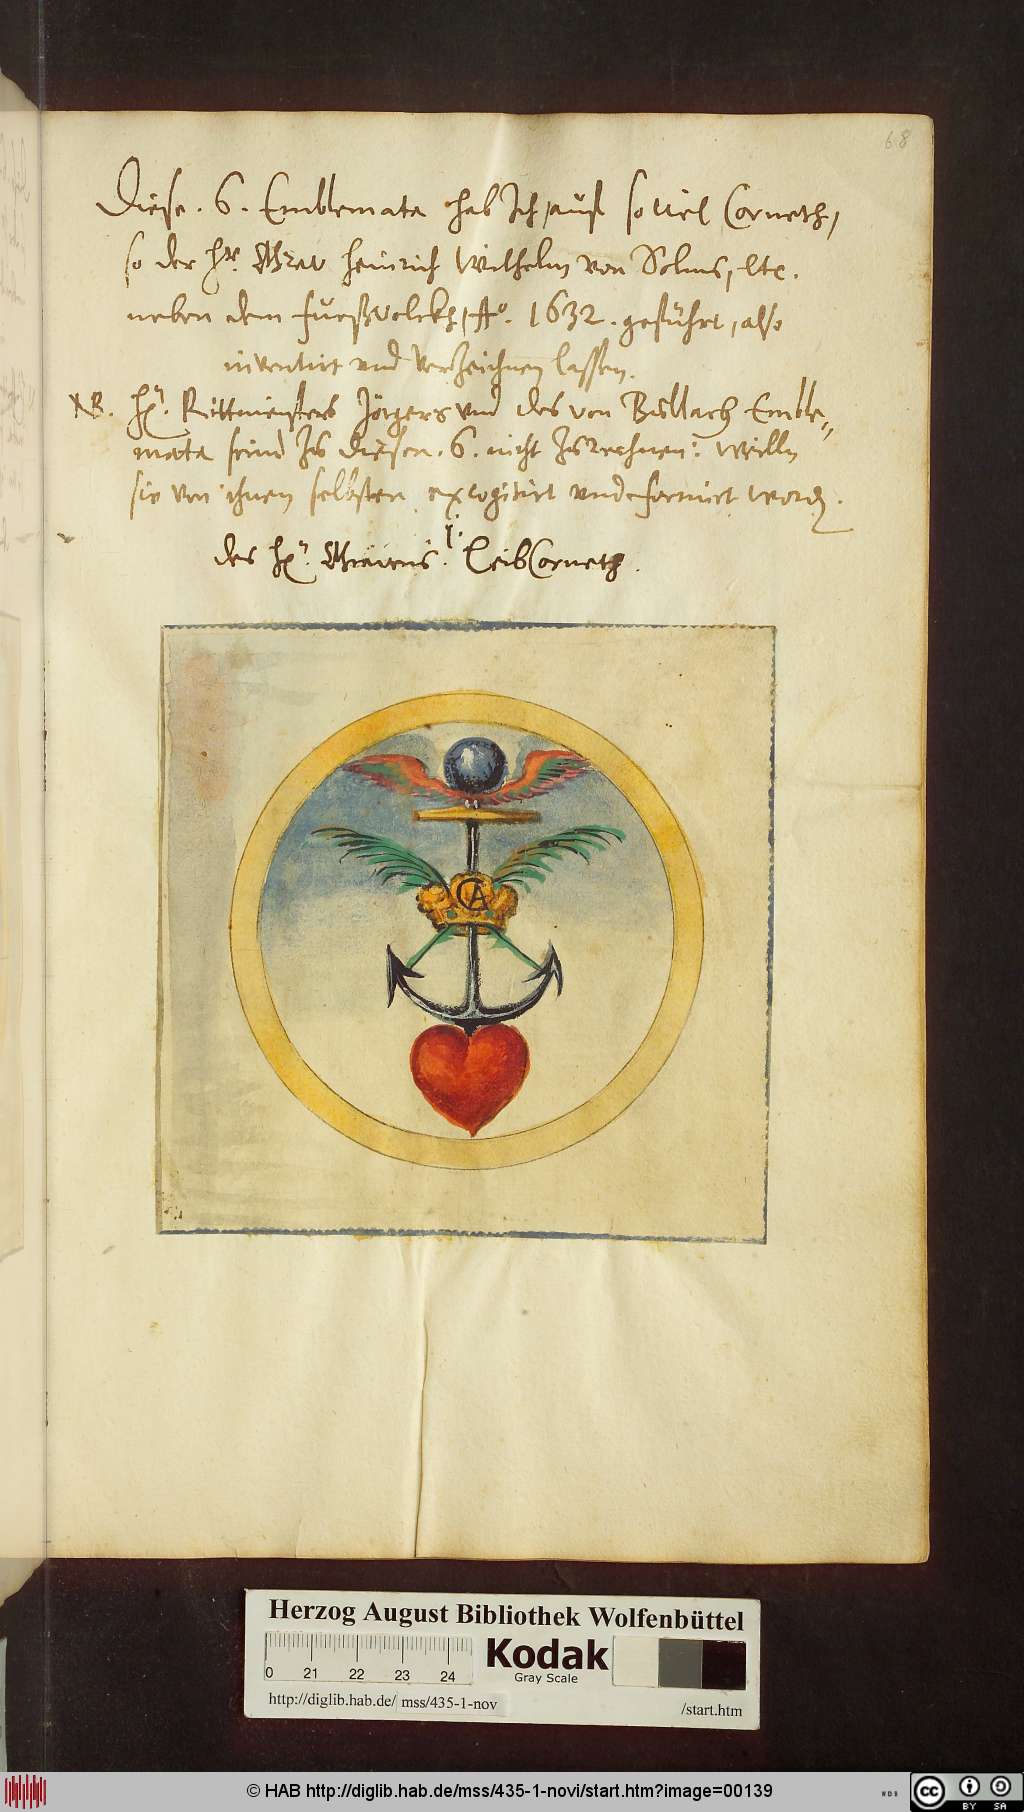 68
Diese. 6. Emblemata hab Ich, auß soviel Corneth,
so der hr. Grav Heinrich Wilhelm von Solms, etc.
neben dem fueßvolckh, Ao. 1632. geführt, also
inventirt und verzeichnen lassen.
NB. Hn. Rittmeisters Jörgers und des von Bullach Emble„
mata seind zu diesen. 6. nicht zu rechnen: weilln
sie von ihnen selbsten excogitirt und formirt word.
I.
des hn. Gravens. LeibCorneth.
CA
Herzog August Bibliothek Wolfenbüttel
0 21 22 23 24
Kodak
Gray Scale
http://diglib.hab.de/ mss/435-1-nov /start.htm
© HAB http://diglib.hab.de/mss/435-1-novi/start.htm?image=00139
cc BY SA